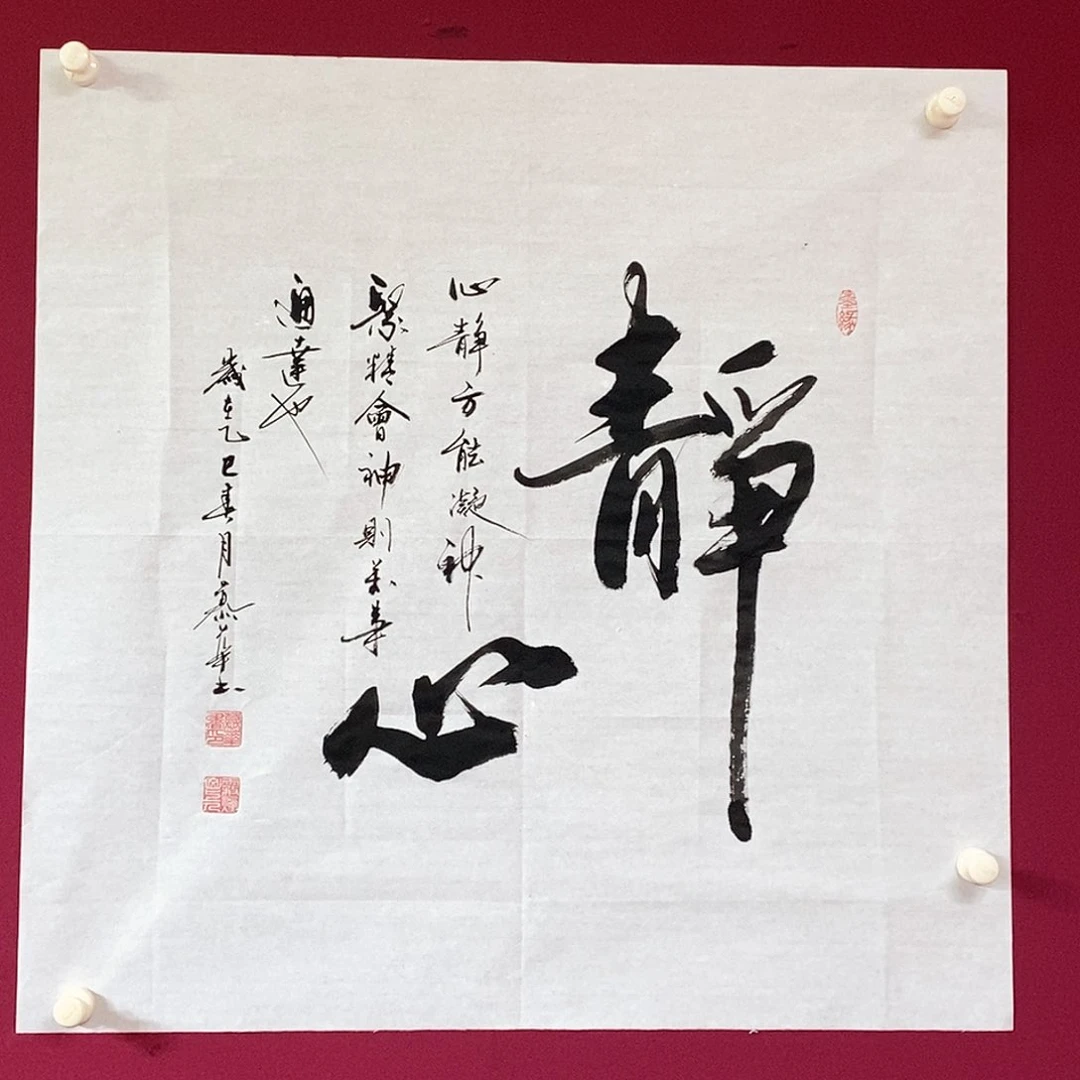 靜心
心靜方能凝神
聚精會神則萬事
通達也
歲在乙巳春月慕華書